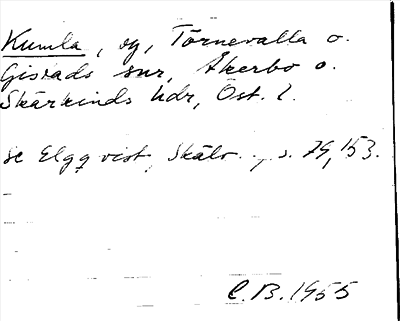 Kumla, og, Törnevalla o.
Gistads snr, Åkerbo o.
Skärkinds hdr, Öst. l.
se Elgqvist, Skälv. , s. 79, 153.
C.B. 1955